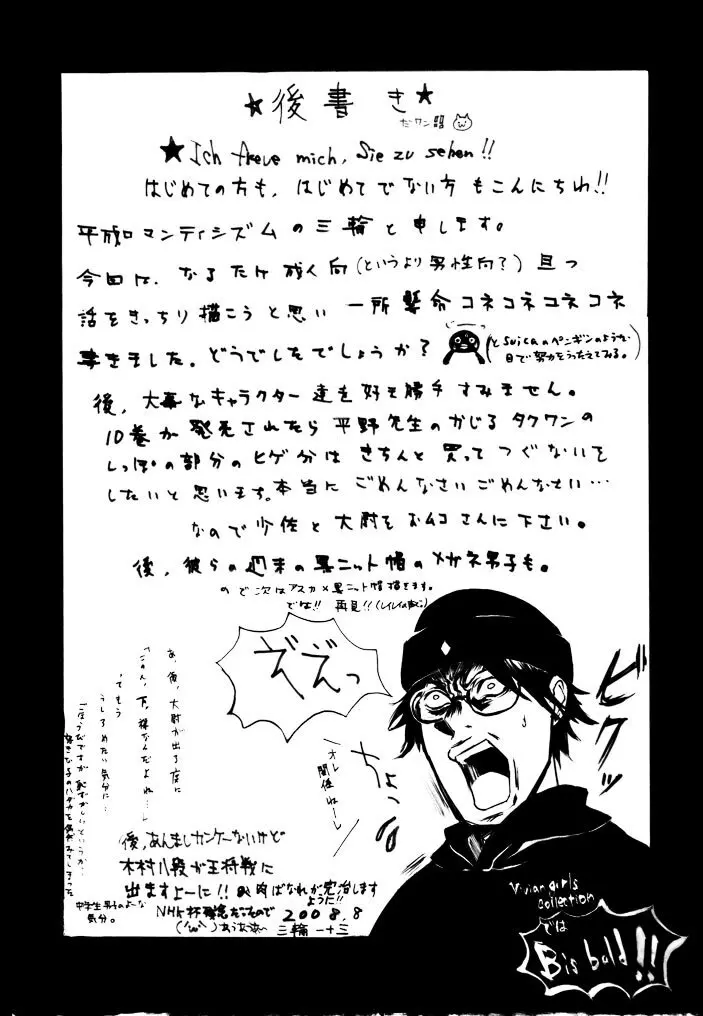 ★後書き★
だワン!!
★Ich freue mich, Sie zu sehen!!
はじめての方も、はじめてでない方もこんにちわ!!
平成ロマンティシズムの三輪と申します。
今回は、なるたけ成人向(というより男性向?)且つ
話をきっちり描こうと思い一所懸命コネコネコネコネ
書きました。どうでしたでしょうか?
(とSuicaのペンギンのような
目で努力をうったえてみる。)
後、大事なキャラクター達を好き勝手すみません。
10巻が発売されたら平野先生のかじるタクワンの
しっぽの部分のヒゲ分はきちんと買ってつぐないを
したいと思います。本当にごめんなさいごめんなさい…
なので少佐と大尉をおムコさんに下さい。
後、彼らの週末の黒ニット帽のメガネ男子も。
ので次はアスカ×黒ニット帽描きます。
では!! 再見!!
ぞぞえっ
ビクッ
ちょっ
オレ
関係ねーし
あ、後、大尉が出る度に
「ごめん、下、裸なんだよね…」
ってもう
うしろめたい気分に…
中学生男子のよーな
気分。
後、あんましカンケーないけど
木村八段が王将戦に
出ますよーに!! 肉ばなれが完治します
ように!!
NHK杯残念だったので
2008.8
三輪一十三
Vivian girls
collection
では
Bis bald!!